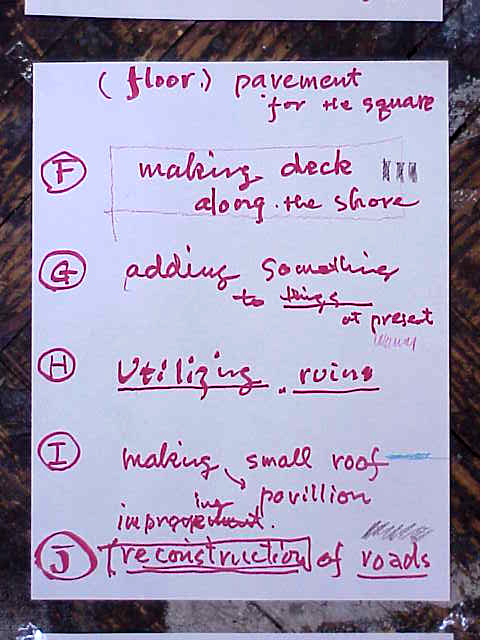 (floor.) pavement
for the square
F making deck
along the shore
G adding something
to things
at present
H Utilizing ruins
I making small roof
pavillion
improving.
J reconstruction of roads